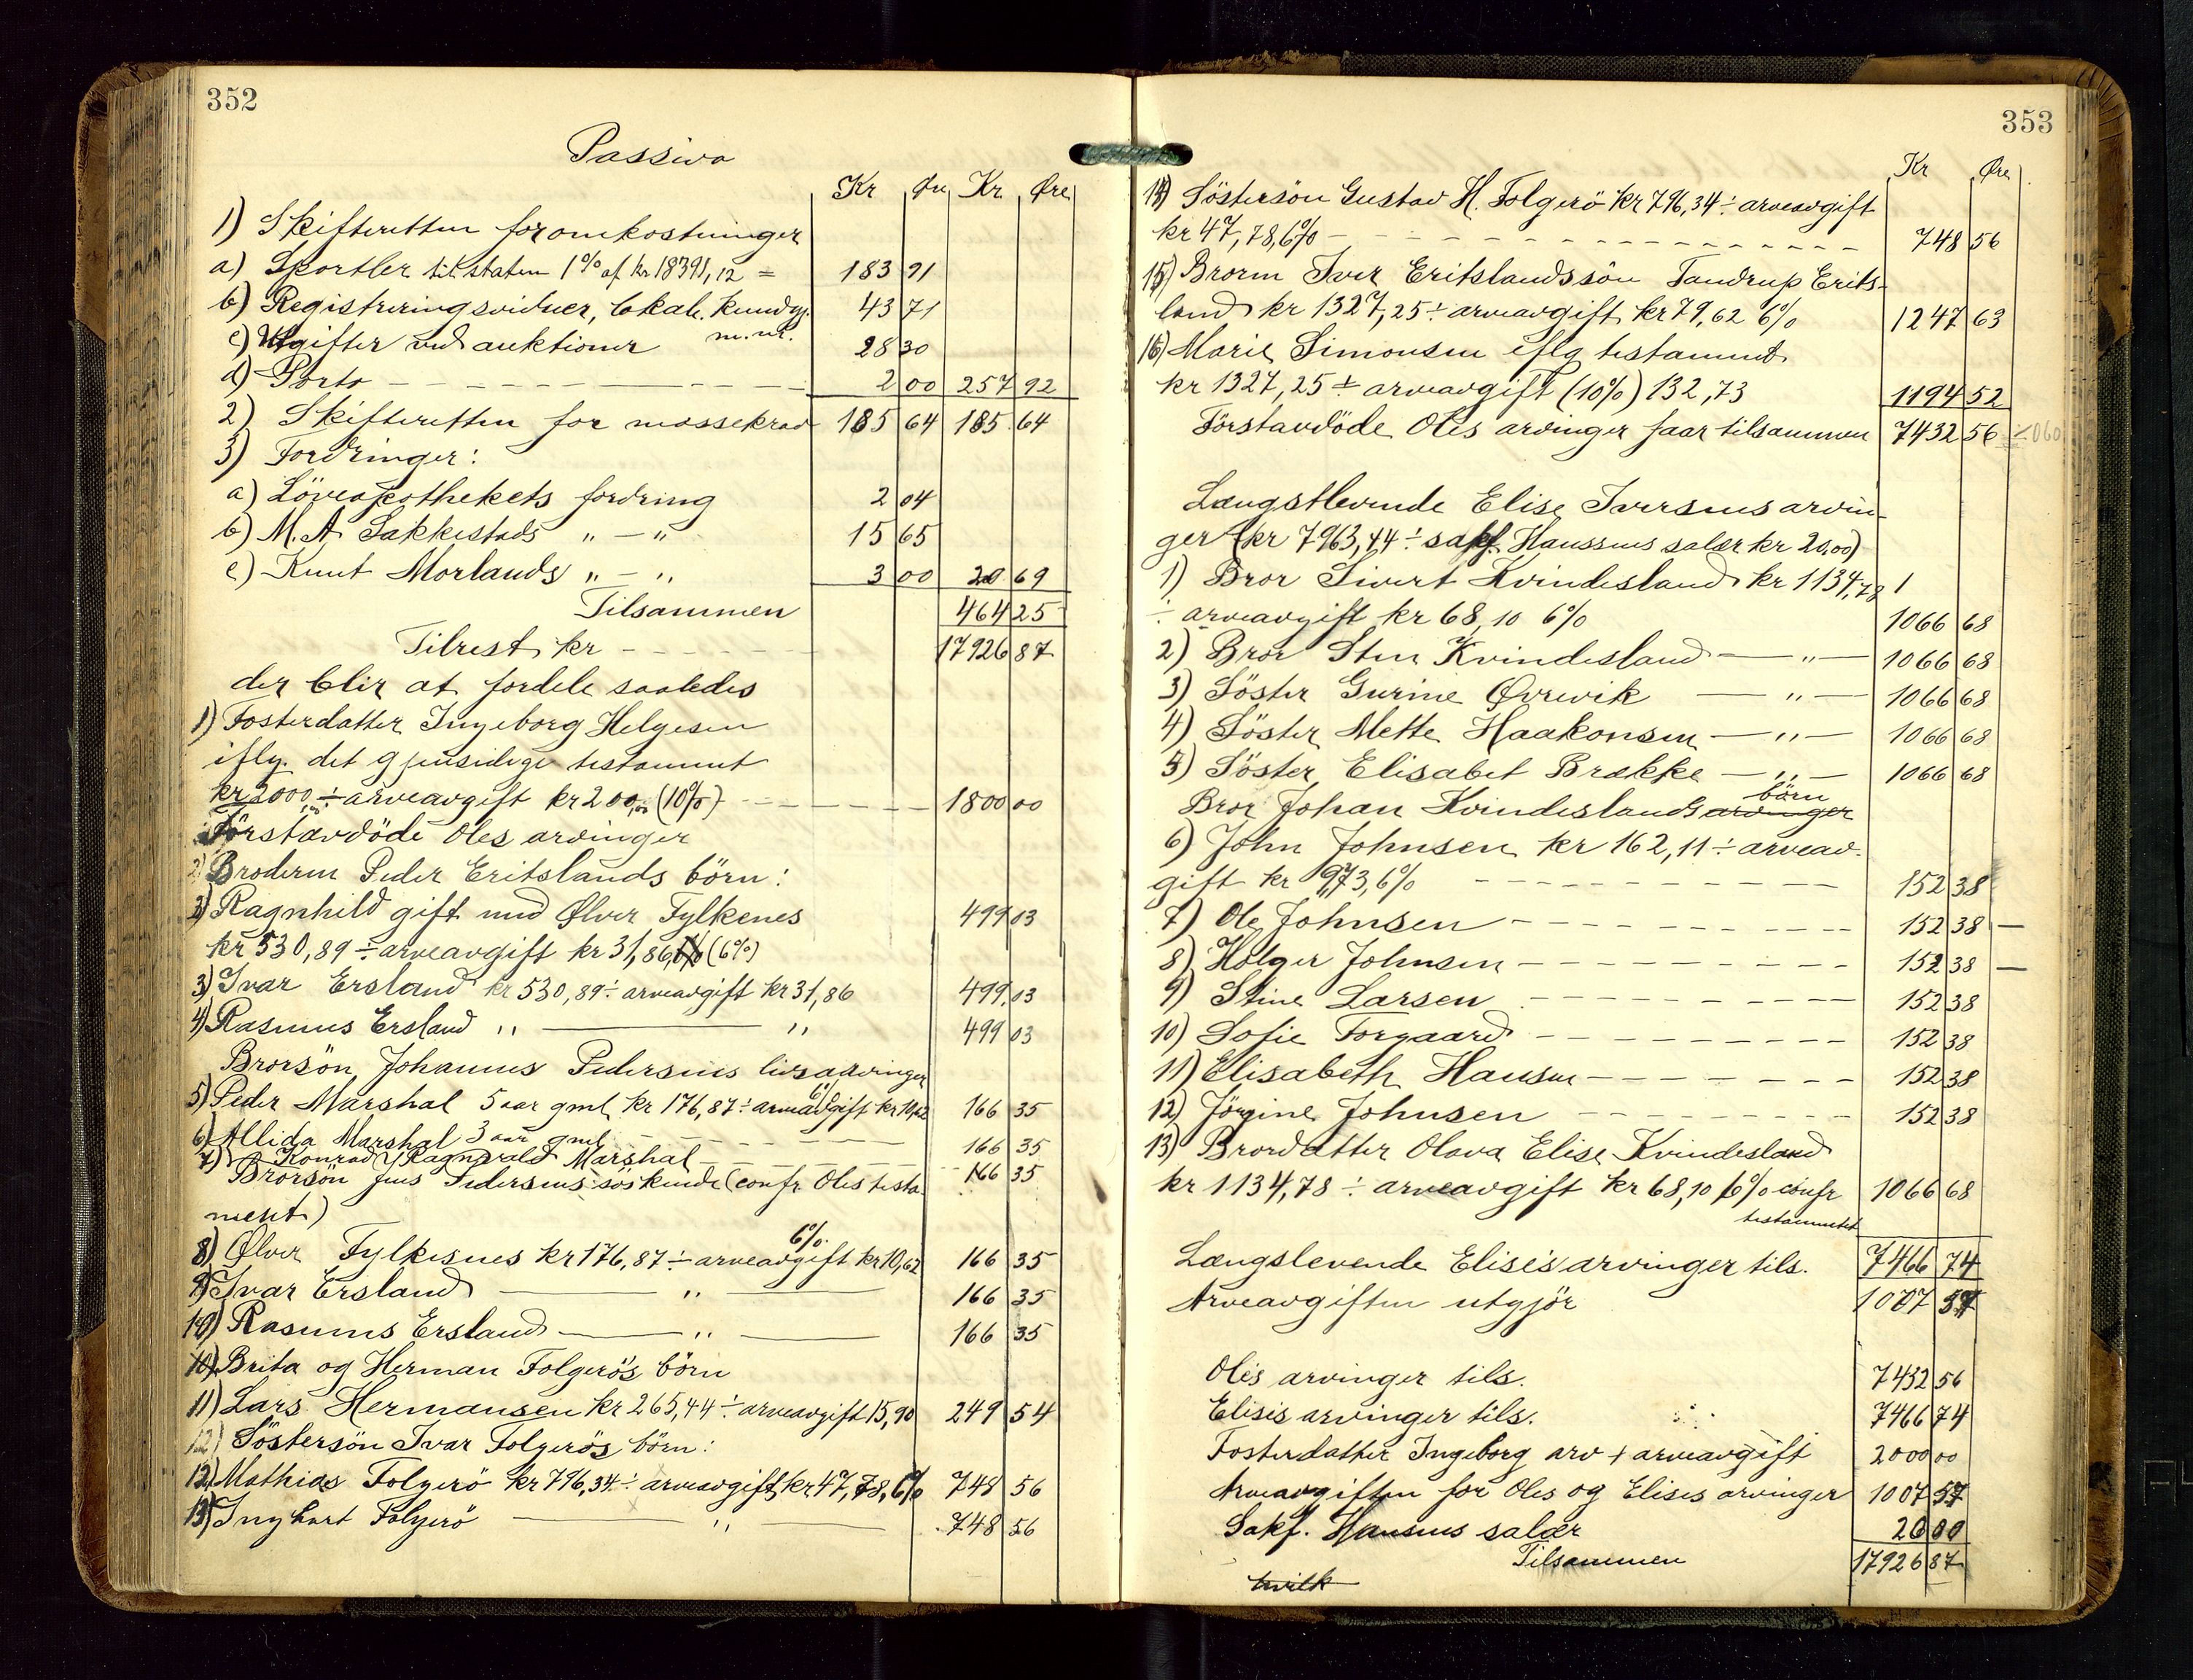 352
Passiva
Kr Øre Kr Øre
1) Skifteretten for omkostninger
a) Sportler til staten 1% af kr 18391,12 = 183 91
b) Registreringsvidner, lokale, kundgj. 43 71
m.m.
c) Utgifter ved auktioner 28 30
d) Porto 2 00 257 92
2) Skifteretten for massekrav 185 64 185 64
3) Fordringer:
a) Löveapothekets fordring 2 04
b) M. A. Sakkestads " — " 15 65
c) Knut Morlands " — " 3 00 20 69
Tilsammen 464 25
Tilrest kr 17926 87
der blir at fordele saaledes
1) Fosterdatter Ingeborg Helgesen
iflg. det gjensidige testament
kr 2000,00 ÷ arveavgift kr 200,00 (10%) 1800 00
Förstavdöde Oles arvinger
Broderen Peder Eritslands börn:
2) Ragnhild gift med Ølver Fylkenes 499 03
kr 530,89 ÷ arveavgift kr 31,86 (6%)
3) Ivar Ersland kr 530,89 ÷ arveavgift kr 31,86 499 03
4) Rasmus Ersland " — " 499 03
Brorsön Johannes Pedersens livsarvinger
5) Peder Marshal 5 aar gml. kr 176,87 ÷ arveavgift kr 10,62 166 35
6) Allida Marshal 3 aar gml. 166 35
7) Konrad Ragnvald Marshal 166 35
Brorsön Jens Pedersens söskende (confr. Oles testa-
ment)
6%
8) Ølver Fylkesnes kr 176,87 ÷ arveavgift kr 10,62 166 35
9) Ivar Ersland — " — 166 35
10) Rasmus Ersland — " — 166 35
Brita og Herman Folgerös börn
11) Lars Hermansen kr 265,44 ÷ arveavgift 15,90 249 54
Söstersön Ivar Folgerös börn:
12) Mathias Folgerö kr 796,34 ÷ arveavgift kr 47,78, 6% 748 56
13) Ingbart Folgerö — " — 748 56
353
Kr Øre
14) Söstersön Gustav H. Folgerö kr 796,34 ÷ arveavgift
kr 47,78, 6% 748 56
15) Broren Iver Eritslandssön Tandrup Erits-
land kr 1327,25 ÷ arveavgift kr 79,62 6% 1247 63
16) Marie Simonsen iflg testament
kr 1327,25 ÷ arveavgift (10%) 132,73 1194 52
Förstavdöde Oles arvinger faar tilsammen 7432 56
Længstlevende Elise Iversens arvin-
ger (kr 7963,44 ÷ sakf. Hanssens salær kr 20,00)
1) Bror Sivert Kvindesland kr 1134,78
÷ arveavgift kr 68,10 6% 1066 68
2) Bror Sten Kvindesland — " — 1066 68
3) Söster Gurine Øvrevik — " — 1066 68
4) Söster Mette Haakonsen — " — 1066 68
5) Söster Elisabet Brække — " — 1066 68
börn
Bror Johan Kvindeslands arvinger
6) John Johnsen kr 162,11 ÷ arveav-
gift kr 9,73, 6% 152 38
7) Ole Johnsen 152 38 —
8) Holger Johnsen 152 38 —
9) Stine Larsen 152 38
10) Sofie Torgaard 152 38
11) Elisabeth Hansen 152 38
12) Jörgine Johnsen 152 38
13) Brordatter Olava Elise Kvindesland
kr 1134,78 ÷ arveavgift kr 68,10 6% confr 1066 68
testamentet
Længslevende Elise's arvinger tils. 7466 74
Arveavgiften utgjör 1007 57
Oles arvinger tils. 7432 56
Elises arvinger tils. 7466 74
Fosterdatter Ingeborg arv + arveavgift 2000 00
Arveavgiften for Oles og Elises arvinger 1007 57
Sakf. Hansens salær 20 00
Tilsammen 17926 87
hvilk